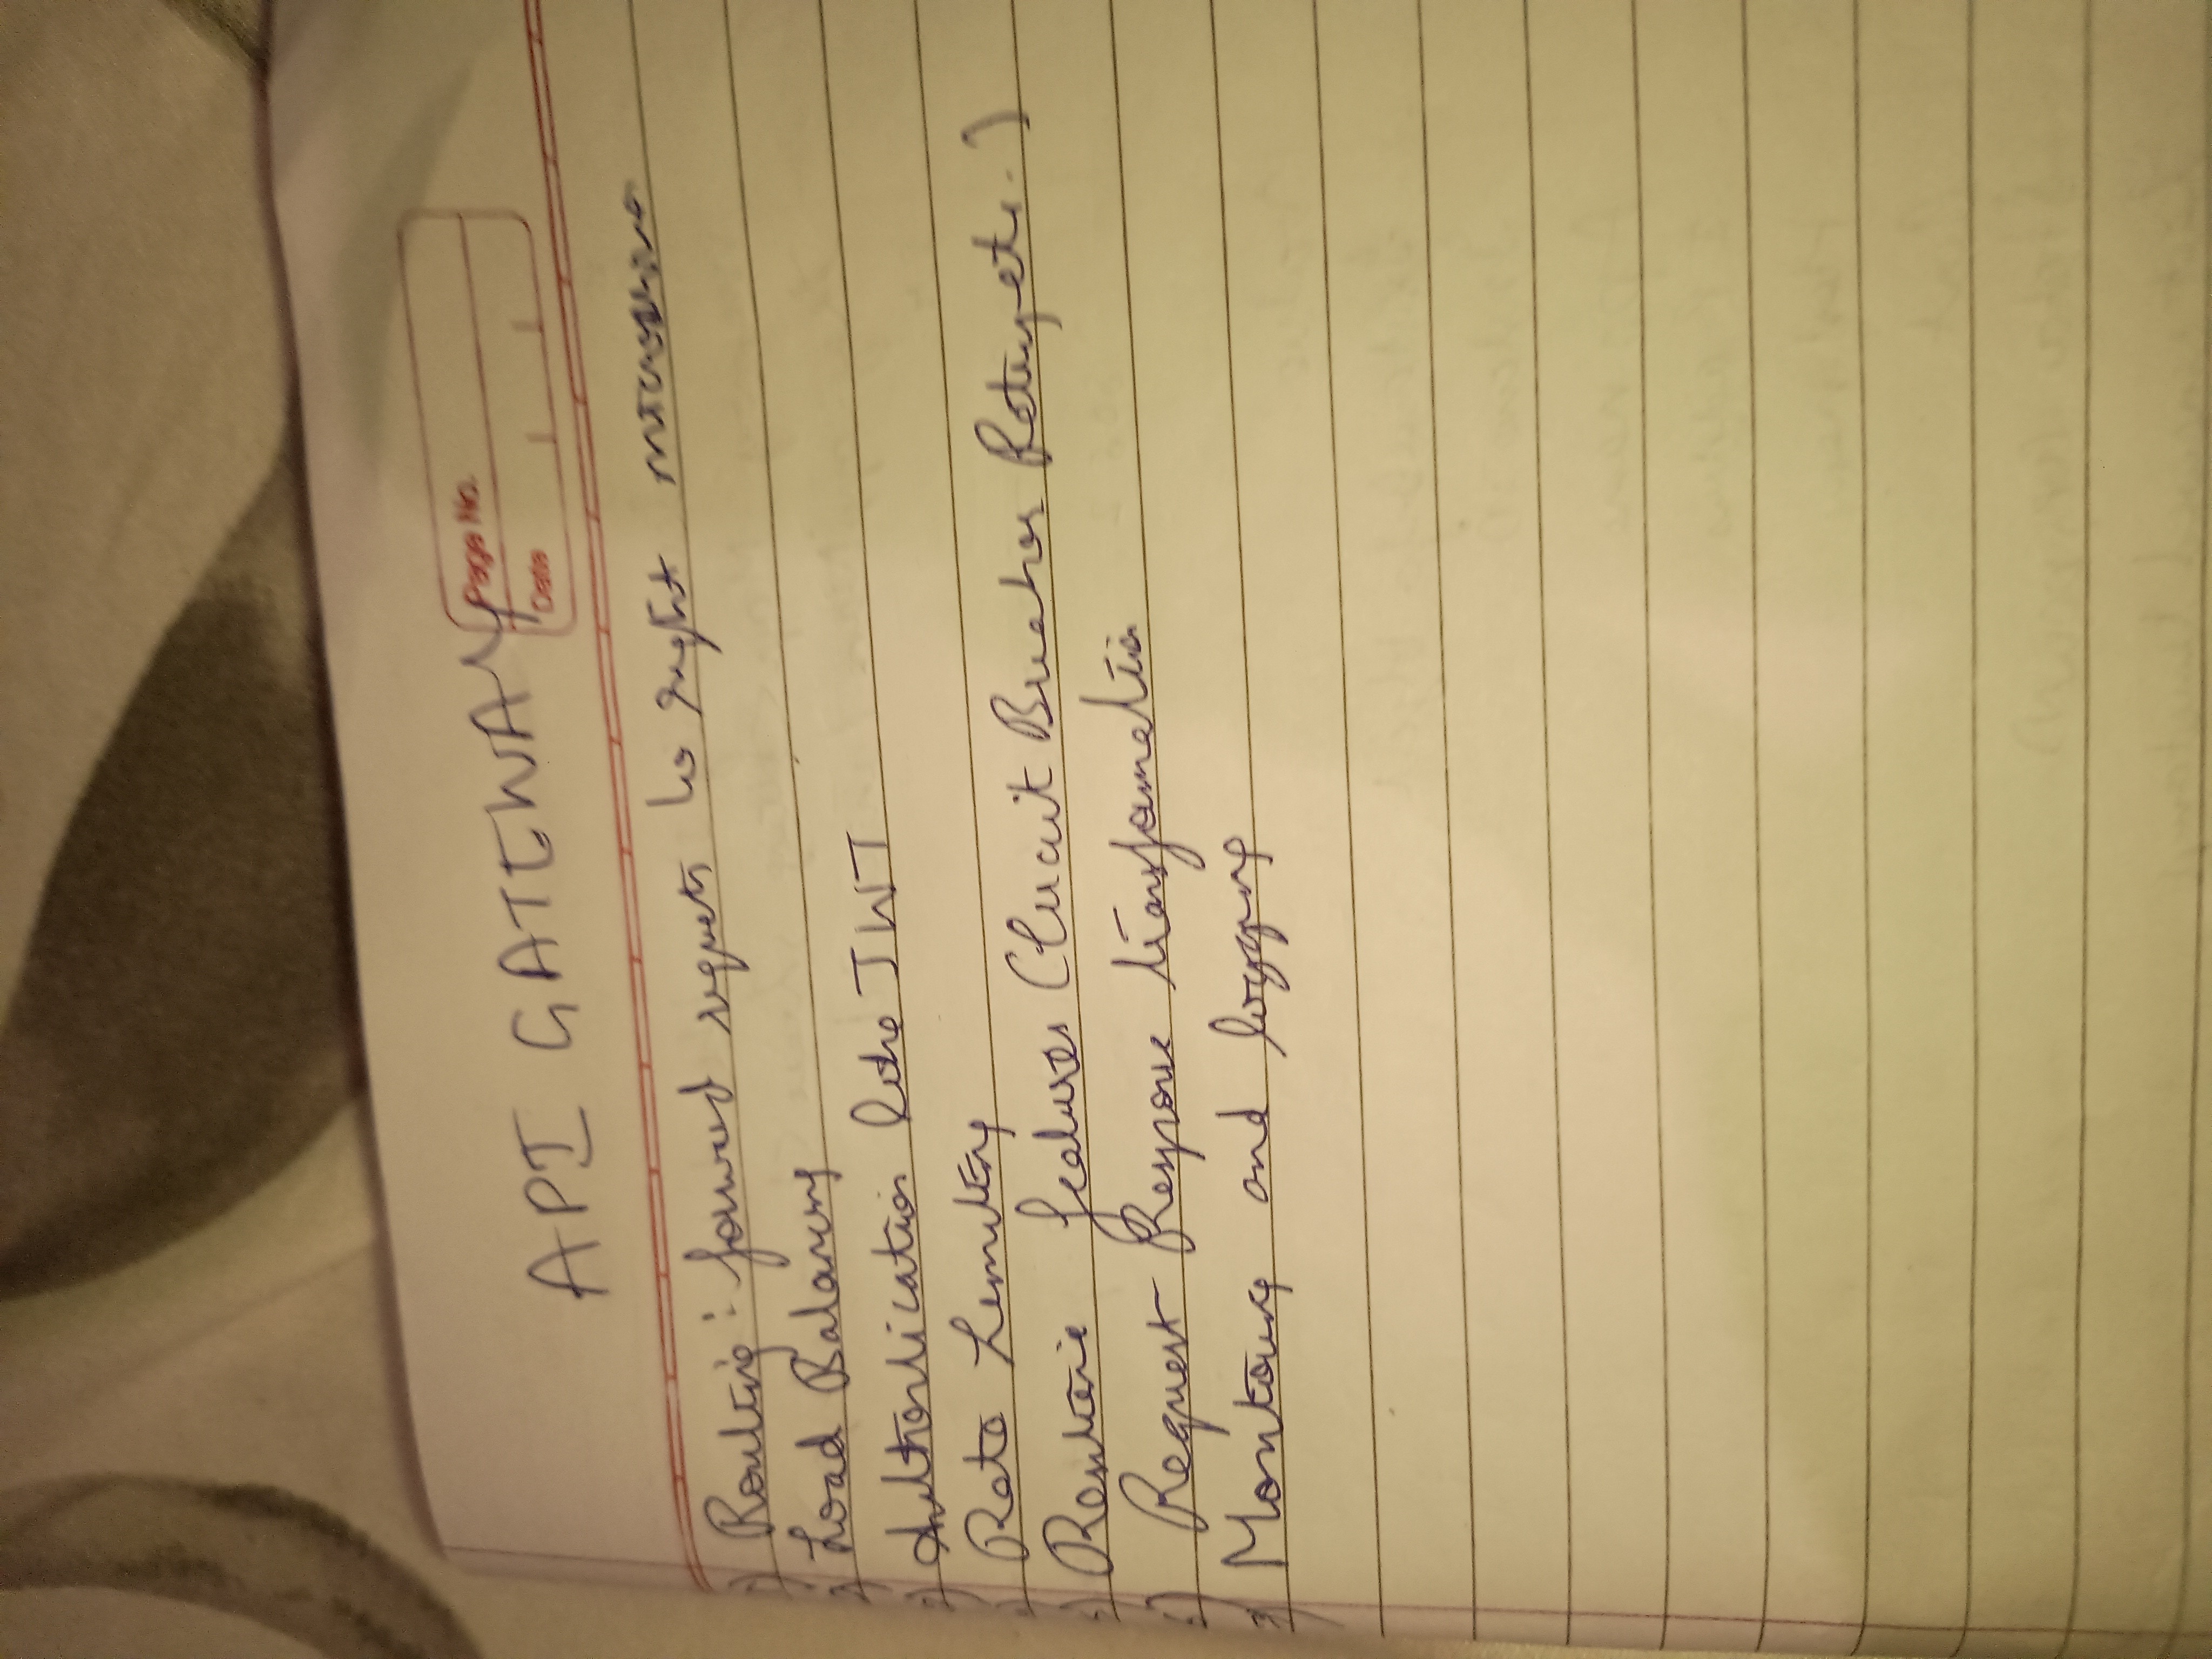 API GATEWAY
Page No.
Date
1) Routing : forward requests to right microservice
2) Load Balancing
3) Authentication like JWT
4) Rate Limiting
5) features (Circuit Breaker Retry etc.)
6) Request Response transformation
7) Monitoring and logging